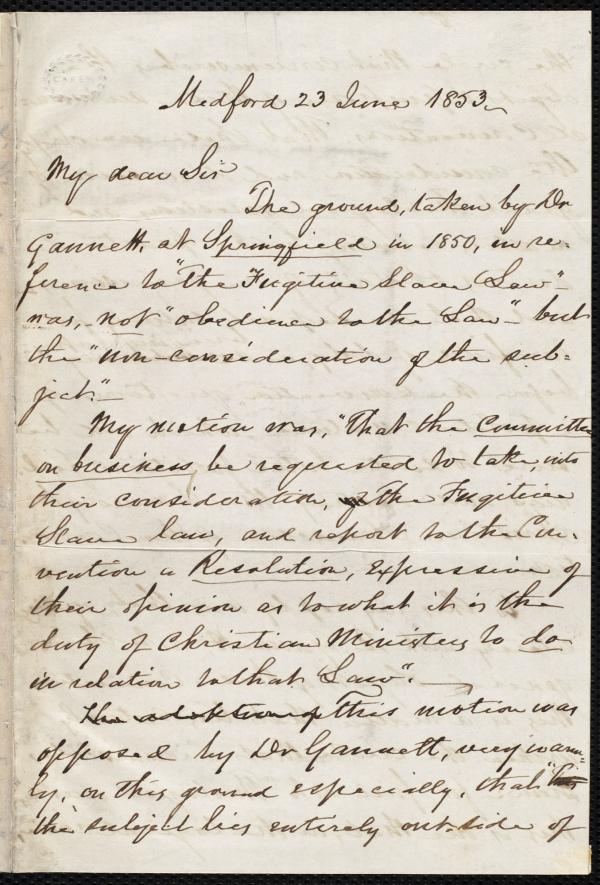 Medford 23 June 1853
My dear Sir
The ground, taken by Dr
Gannett, at Springfield in 1850, in re-
ference to "the Fugitive Slave Law"-
was, - not "obedience to the Law" - but
the "non-consideration of the sub-
ject." -
My motion was, "That the Committee
on business, be requested to take, into
their consideration, the Fugitive
Slave law, and report to the Con-
vention a Resolution, expressive of
their opinion as to what it is the
duty of Christian Ministers to do
in relation to that Law". -
The adoption of This motion was
opposed by Dr Gannett, very warm-
ly, on this ground especially, that "
the subject lies entirely outside of